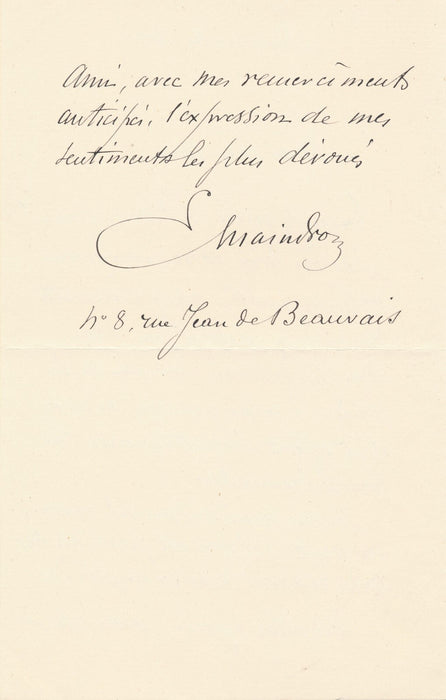 Ami, avec mes remerciments
anticipés, l'expression de mes
sentiments les plus dévoués
E Maindron
No 8, rue Jean de Beauvais